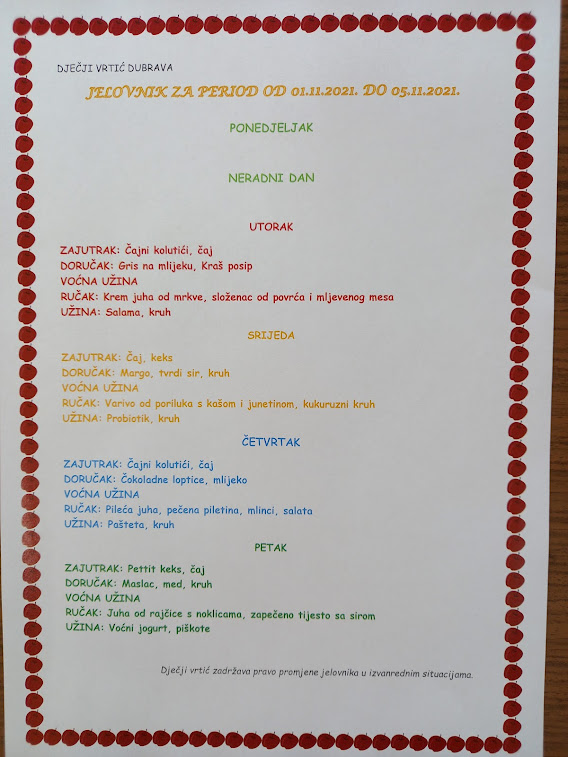 DJEČJI VRTIĆ DUBRAVA
JELOVNIK ZA PERIOD OD 01.11.2021. DO 05.11.2021.
PONEDJELJAK
NERADNI DAN
UTORAK
ZAJUTRAK: Čajni kolutići, čaj
DORUČAK: Gris na mlijeku, Kraš posip
VOĆNA UŽINA
RUČAK: Krem juha od mrkve, složenac od povrća i mljevenog mesa
UŽINA: Salama, kruh
SRIJEDA
ZAJUTRAK: Čaj, keks
DORUČAK: Margo, tvrdi sir, kruh
VOĆNA UŽINA
RUČAK: Varivo od poriluka s kašom i junetinom, kukuruzni kruh
UŽINA: Probiotik, kruh
ČETVRTAK
ZAJUTRAK: Čajni kolutići, čaj
DORUČAK: Čokoladne loptice, mlijeko
VOĆNA UŽINA
RUČAK: Pileća juha, pečena piletina, mlinci, salata
UŽINA: Pašteta, kruh
PETAK
ZAJUTRAK: Pettit keks, čaj
DORUČAK: Maslac, med, kruh
VOĆNA UŽINA
RUČAK: Juha od rajčice s noklicama, zapečeno tijesto sa sirom
UŽINA: Voćni jogurt, piškote
Dječji vrtić zadržava pravo promjene jelovnika u izvanrednim situacijama.